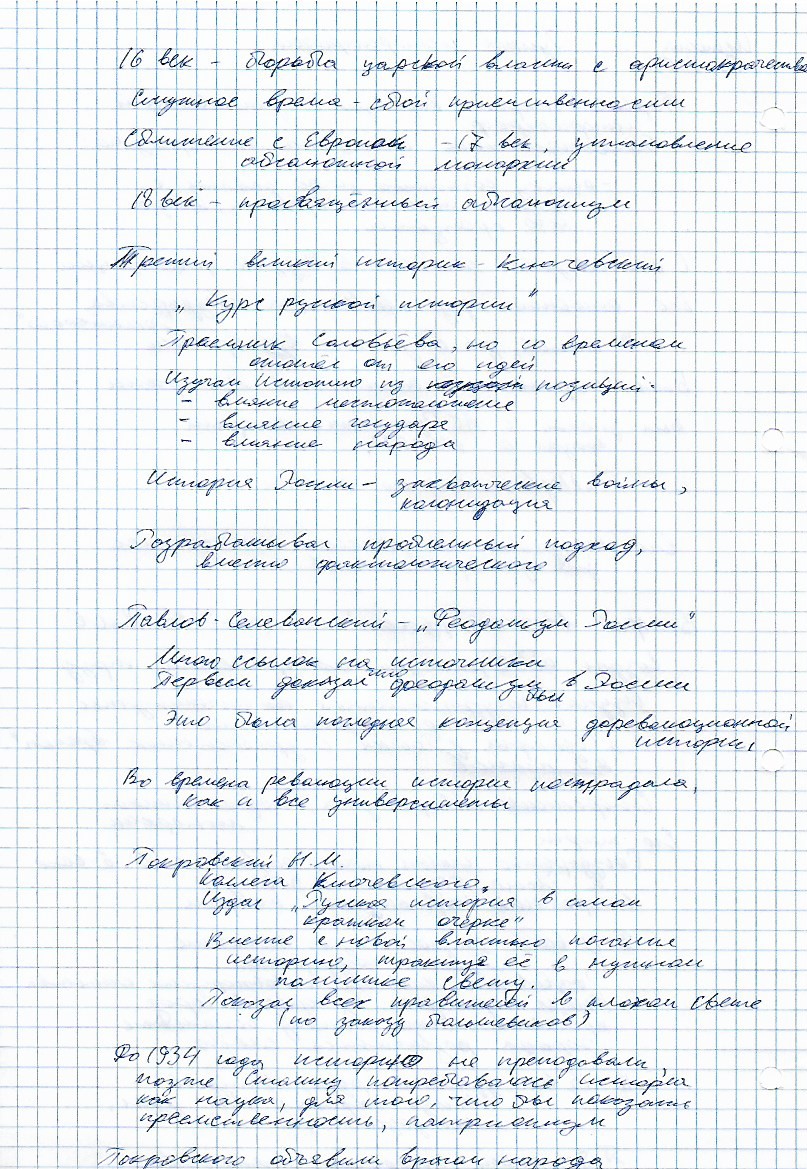 16 век - борьба царской власти с аристократчества
Смутное время - сбой приемственности
Сближение с Европой - 17 век, установление
абсолютной монархии
18 век - просвящённый абсолютизм
Третий великий историк - Ключевский
„Курс русской истории"
Праемник Соловьёва, но со временем
отошёл от его идей
Изучал Историю из позиций:
- влияние местоположение
- влияние государя
- влияние народа
История России - захватнические войны,
колонизация
Розрабатывал проблемный подход,
вместо фактологического
Павлов-Селеванский - „Феодализм России"
Много ссылок на источники
Первым доказал что феодализм в России
был
Это была последняя концепция дореволюционной
истории,
Во времена революции история пострадала,
как и все университеты
Покровский Н.М.
Коллега Ключевского,
Издал „Русская история в самом
кратком очерке"
Вместе с новой властью
историю, трактуя её в нужном
политике свету.
Показал всех правителей в плохом свете
(по заказу большевиков)
До 1934 года историю не преподовали,
позже Сталину потребовалась история
как наука, для того, что бы показать
преемственность, патриотизм
Покровского объявили врагом народа